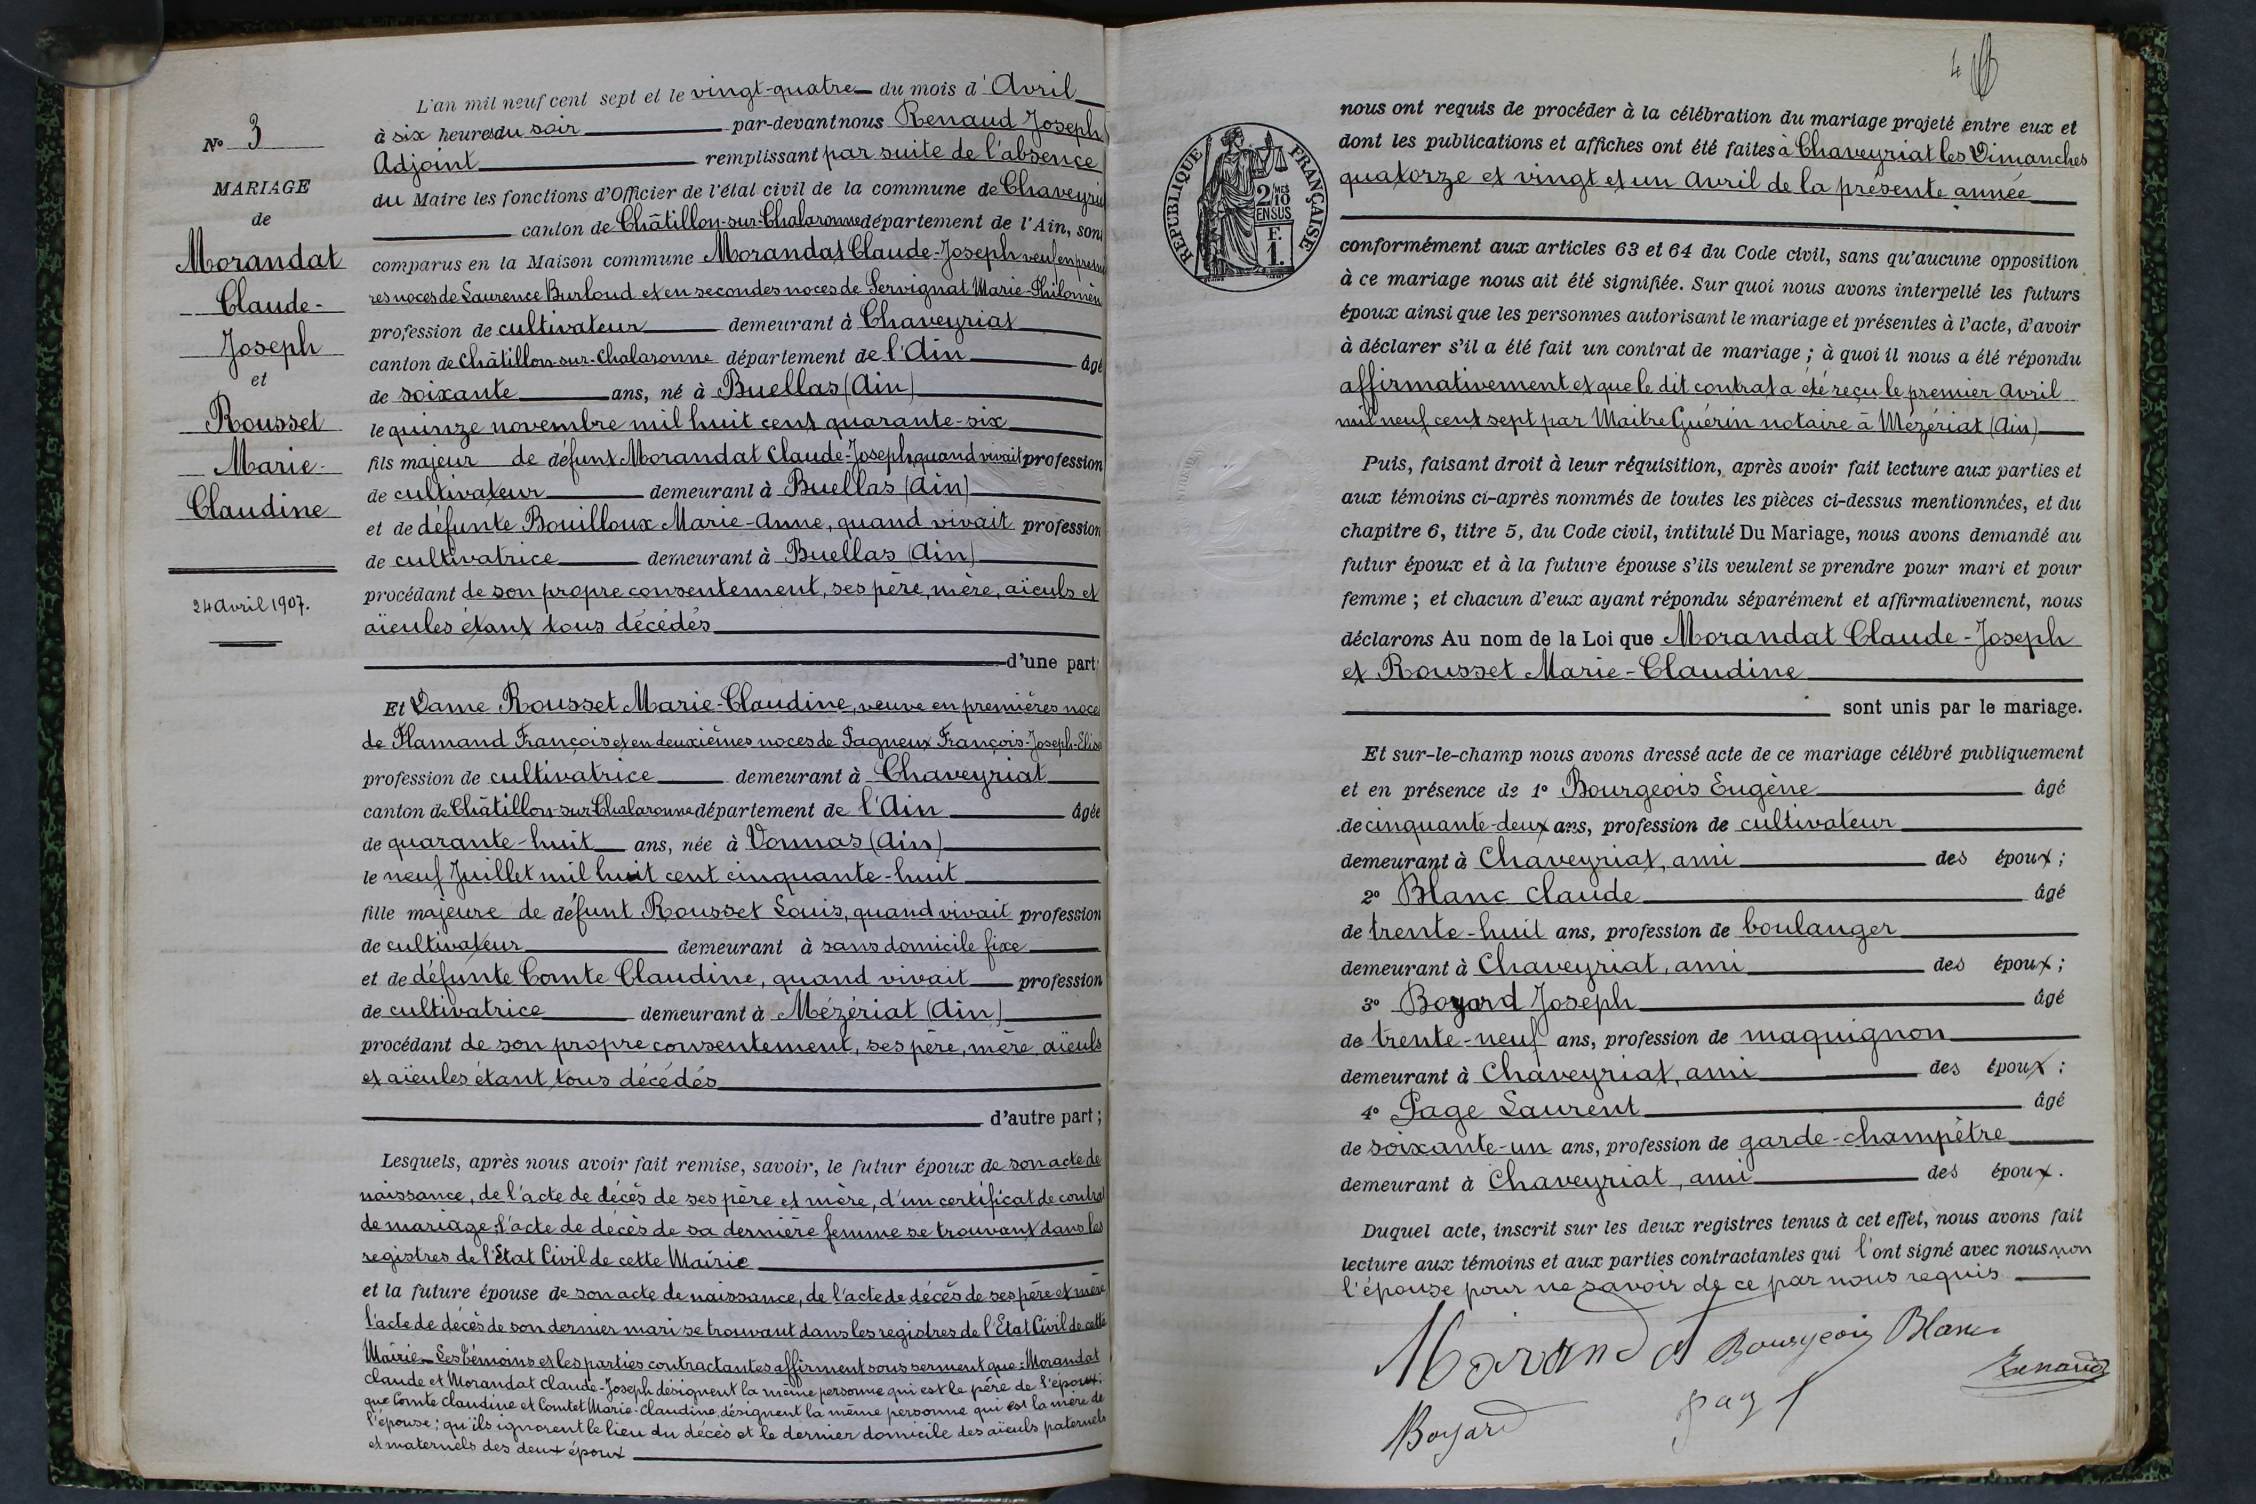 N° 3
MARIAGE
de
Morandat
Claude-
Joseph
et
Rousset
Marie-
Claudine
24 avril 1907.
L'an mil neuf cent sept et le vingt-quatre du mois d'Avril
à six heures du soir par-devant nous Renaud Joseph
Adjoint remplissant par suite de l'absence
du Maire les fonctions d'Officier de l'état civil de la commune de Chaveyri
canton de Châtillon-sur-Chalaronne département de l'Ain, sont
comparus en la Maison commune Morandat Claude-Joseph veuf en premi
res noces de Laurence Burloud et en secondes noces de Servignat Marie-Philomèn
profession de cultivateur demeurant à Chaveyriat
canton de Châtillon-sur-Chalaronne département de l'Ain âgé
de soixante ans, né à Buellas (Ain)
le quinze novembre mil huit cent quarante-six
fils majeur de défunt Morandat Claude-Joseph, quand vivait profession
de cultivateur demeurant à Buellas (Ain)
et de défunte Bouilloux Marie-Anne, quand vivait profession
de cultivatrice demeurant à Buellas (Ain)
procédant de son propre consentement, ses père, mère, aïeuls et
aïeules étant tous décédés
d'une part
Et Dame Rousset Marie-Claudine, veuve en premières noce
de Flamand François et en deuxièmes noces de Pagneux François-Joseph-Elise
profession de cultivatrice demeurant à Chaveyriat
canton de Châtillon-sur-Chalaronne département de l'Ain âgée
de quarante-huit ans, née à Vonnas (Ain)
le neuf Juillet mil huit cent cinquante-huit
fille majeure de défunt Rousset Louis, quand vivait profession
de cultivateur demeurant à sans domicile fixe
et de défunte Comte Claudine, quand vivait profession
de cultivatrice demeurant à Mézériat (Ain)
procédant de son propre consentement, ses père, mère, aïeuls
et aïeules étant tous décédés
d'autre part;
Lesquels, après nous avoir fait remise, savoir, le futur époux de son acte de
naissance, de l'acte de décès de ses père et mère, d'un certificat de contrat
de mariage, l'acte de décès de sa dernière femme se trouvant dans les
registres de l'Etat Civil de cette Mairie
et la future épouse de son acte de naissance, de l'acte de décès de ses père et mère
l'acte de décès de son dernier mari se trouvant dans les registres de l'Etat Civil de cette
Mairie. Les témoins et les parties contractantes affirment sous serment que: Morandat
Claude et Morandat Claude-Joseph désignent la même personne qui est le père de l'époux;
que Comte Claudine et Comtet Marie-Claudine, désignent la même personne qui est la mère de
l'épouse; qu'ils ignorent le lieu du décès et le dernier domicile des aïeuls paternels
et maternels des deux époux
4
RÉPUBLIQUE FRANÇAISE
2/10 MES
EN SUS
F.
1.
nous ont requis de procéder à la célébration du mariage projeté entre eux et
dont les publications et affiches ont été faites à Chaveyriat les Dimanches
quatorze et vingt et un Avril de la présente année
conformément aux articles 63 et 64 du Code civil, sans qu'aucune opposition
à ce mariage nous ait été signifiée. Sur quoi nous avons interpellé les futurs
époux ainsi que les personnes autorisant le mariage et présentes à l'acte, d'avoir
à déclarer s'il a été fait un contrat de mariage; à quoi il nous a été répondu
affirmativement et que le dit contrat a été reçu le premier avril
mil neuf cent sept par Maître Guérin notaire à Mézériat (Ain)
Puis, faisant droit à leur réquisition, après avoir fait lecture aux parties et
aux témoins ci-après nommés de toutes les pièces ci-dessus mentionnées, et du
chapitre 6, titre 5, du Code civil, intitulé Du Mariage, nous avons demandé au
futur époux et à la future épouse s'ils veulent se prendre pour mari et pour
femme; et chacun d'eux ayant répondu séparément et affirmativement, nous
déclarons Au nom de la Loi que Morandat Claude-Joseph
et Rousset Marie-Claudine
sont unis par le mariage.
Et sur-le-champ nous avons dressé acte de ce mariage célébré publiquement
et en présence de 1° Bourgeois Eugène âgé
de cinquante-deux ans, profession de cultivateur
demeurant à Chaveyriat, ami des époux;
2° Blanc Claude âgé
de trente-huit ans, profession de boulanger
demeurant à Chaveyriat, ami des époux;
3° Boyard Joseph âgé
de trente-neuf ans, profession de maquignon
demeurant à Chaveyriat, ami des époux;
4° Page Laurent âgé
de soixante-un ans, profession de garde-champêtre
demeurant à Chaveyriat, ami des époux.
Duquel acte, inscrit sur les deux registres tenus à cet effet, nous avons fait
lecture aux témoins et aux parties contractantes qui l'ont signé avec nous non
l'épouse pour ne savoir de ce par nous requis
Morandat Bourgeois Blanc
Renaud
Boyard page